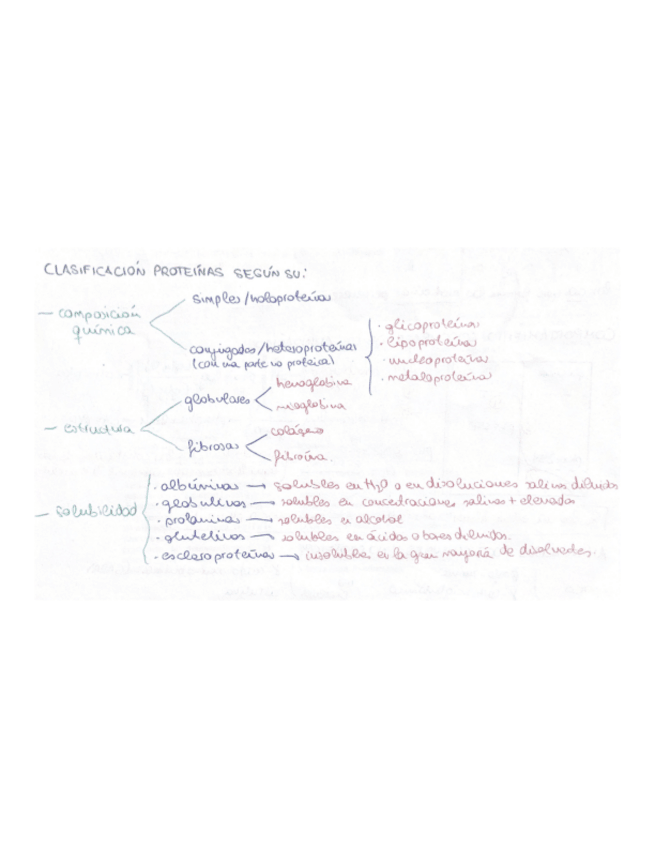 CLASIFICACIÓN PROTEÍNAS SEGÚN SU:
– composición química
simples/holoproteína
conjugados/heteroproteínas
(con una parte no proteica)
· glicoproteína
· lipoproteína
· nucleoproteína
· metaloproteína
– estructura
globulares
hemoglobina
mioglobina
fibrosas
colágeno
fibroína.
– solubilidad
· albúminas → solubles en H₂O o en disoluciones salinas diluidas
· globulinas → solubles en concentraciones salinas + elevadas
· prolaminas → solubles en alcohol
· glutelinas → solubles en ácidos o bases diluidos.
· escleroproteínas → insolubles en la gran mayoría de disolventes.